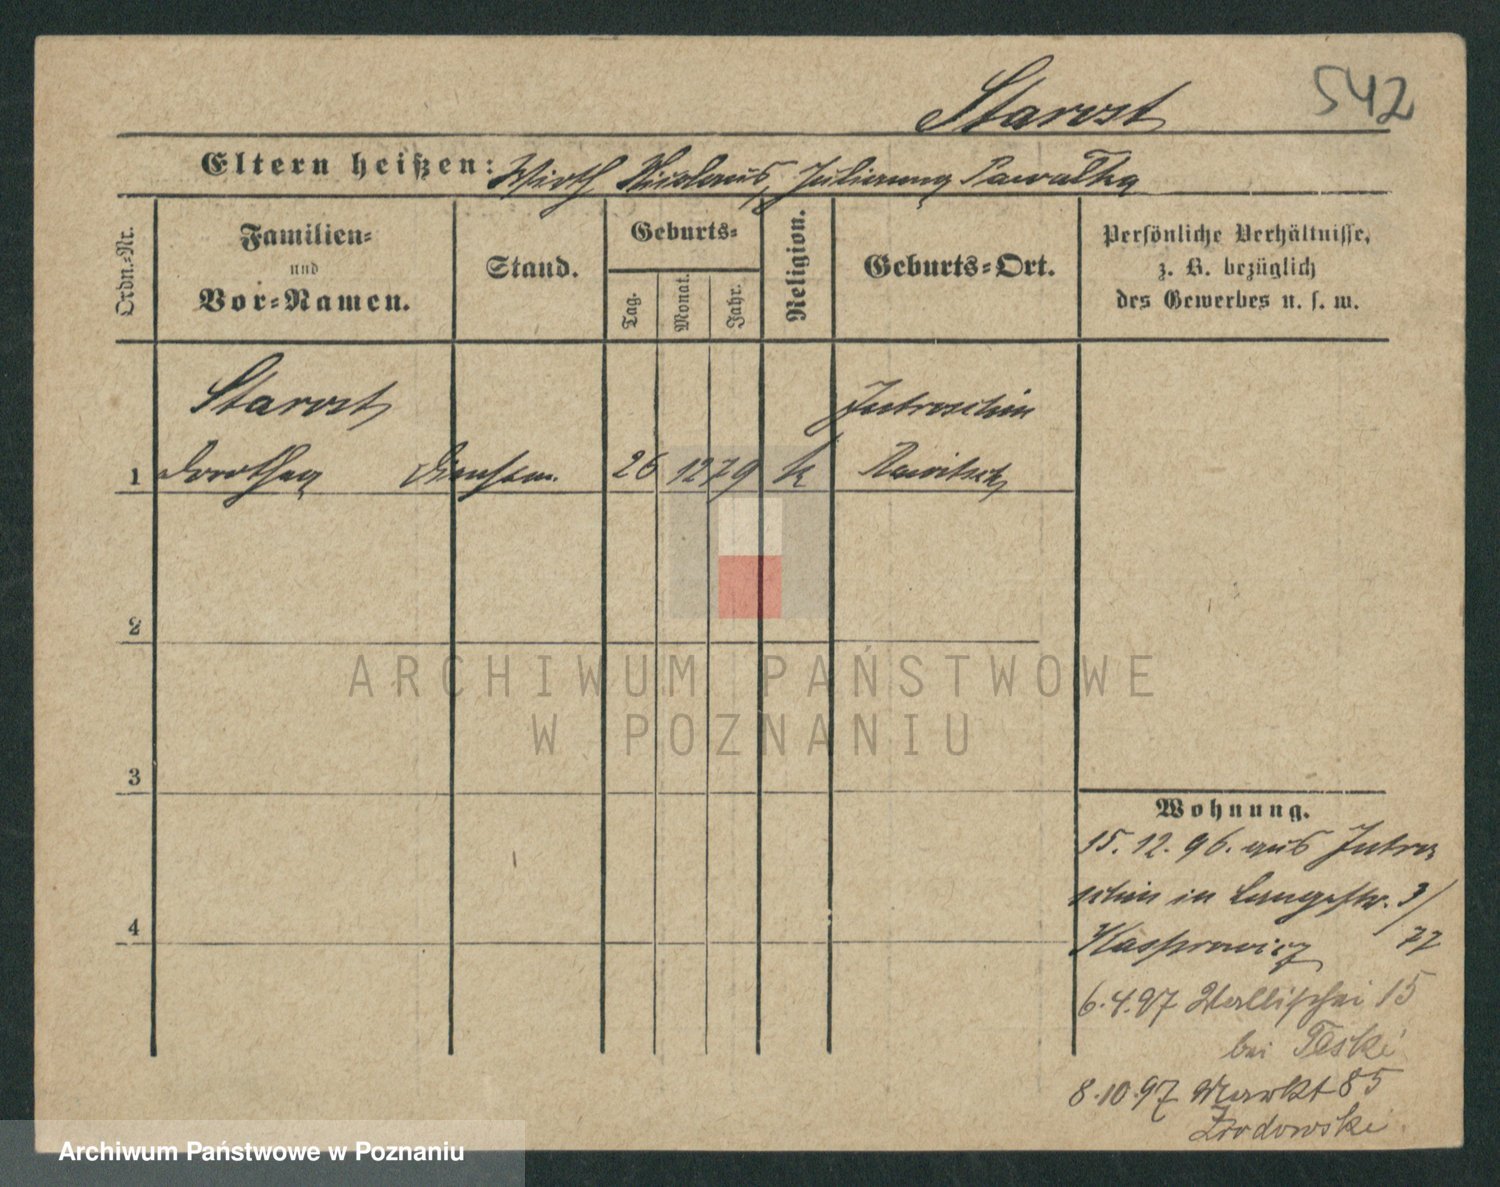 542
Starost
Eltern heißen: Wirth Nicolaus, Julianna Pawalka
Ordn.-Nr.
Familien-
und
Vor-Namen.
Stand.
Geburts-
Tag.
Monat.
Jahr.
Religion.
Geburts-Ort.
Persönliche Verhältnisse,
z. B. bezüglich
des Gewerbes u. s. w.
Starost
Jutroschin
1 Dorothea Dienstm. 26 12 79 k Rawitsch
2
ARCHIWUM PAŃSTWOWE
W POZNANIU
3
Wohnung.
15. 12. 96. aus Jutro
schin in Langestr. 3/
4
Kasprowicz 77
6.4.97 Wallischei 15
bei Teske
8.10.97 Markt 85
Zrodowski
Archiwum Państwowe w Poznaniu